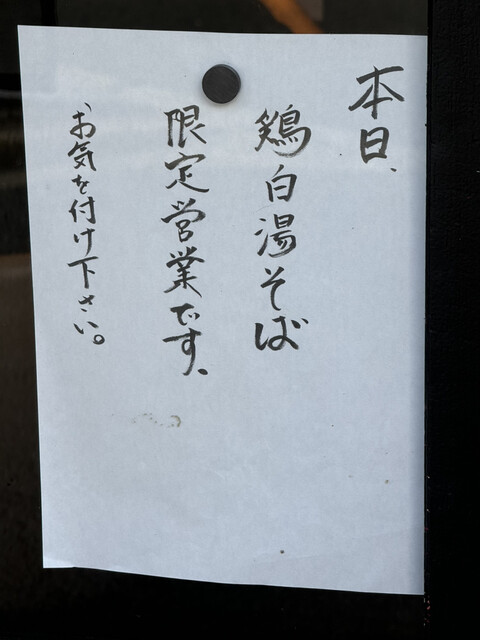 本日、
鶏白湯そば
限定営業です。
お気を付け下さい。